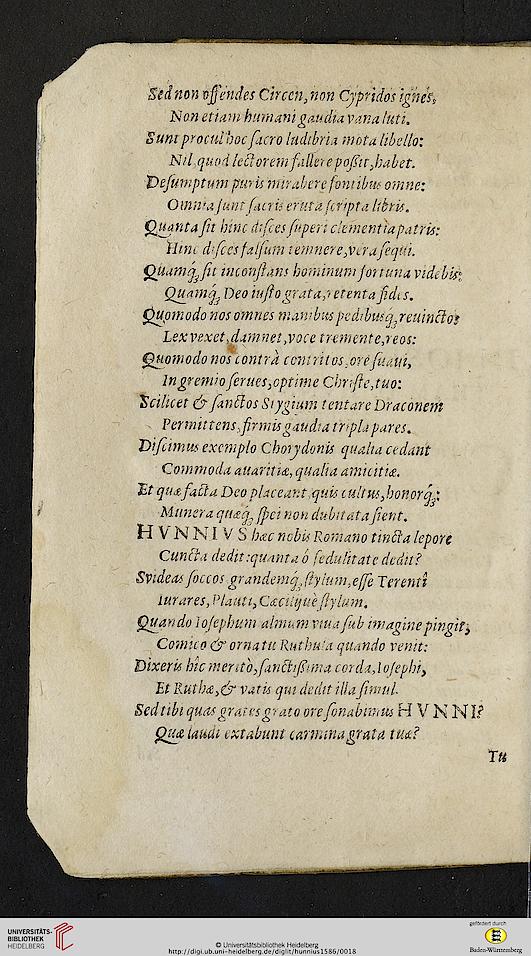 Sed non offendes Circen, non Cypridos ignes,
Non etiam humani gaudia vana luti.
Sunt procul hoc sacro ludibria mota libello:
Nil, quod lectorem fallere poßit, habet.
Desumptum puris mirabere fontibus omne:
Omnia sunt sacris eruta scripta libris.
Quanta sit hinc disces superi clementia patris:
Hinc disces falsum temnere, vera sequi.
Quamq́ sit inconstans hominum fortuna videbis:
Quamq́ Deo iusto grata, retenta fides.
Quomodo nos omnes manibus pedibusq́ reuinctos
Lex vexet, damnet, voce tremente, reos:
Quomodo nos contrà contritos, ore suaui,
In gremio serues, optime Christe, tuo:
Scilicet & sanctos Stygium tentare Draconem
Permittens, firmis gaudia tripla pares.
Discimus exemplo Chorydonis qualia cedant
Commoda auaritiæ, qualia amicitiæ.
Et quæ facta Deo placeant, quis cultus, honorq́:
Munera quæq́ spei non dubitata sient.
HVNNIVS hæc nobis Romano tincta lepore
Cuncta dedit: quanta ó sedulitate dedit?
Si videas soccos grandemq́ stylum, esse Terentî
Iurares, Plauti, Cæcilijuè stylum.
Quando Iosephum almum viua sub imagine pingit,
Comico & ornatu Ruthula quando venit:
Dixeris hîc meritò, sanctißima corda, Iosephi,
Et Ruthæ, & vatis qui dedit illa simul.
Sed tibi quas grates grato ore sonabimus HVNNI?
Quæ laudi extabunt carmina grata tuæ?
Tu
UNIVERSITÄTS-
BIBLIOTHEK
HEIDELBERG
© Universitätsbibliothek Heidelberg
http://digi.ub.uni-heidelberg.de/diglit/hunnius1586/0018
gefördert durch
Baden-Württemberg